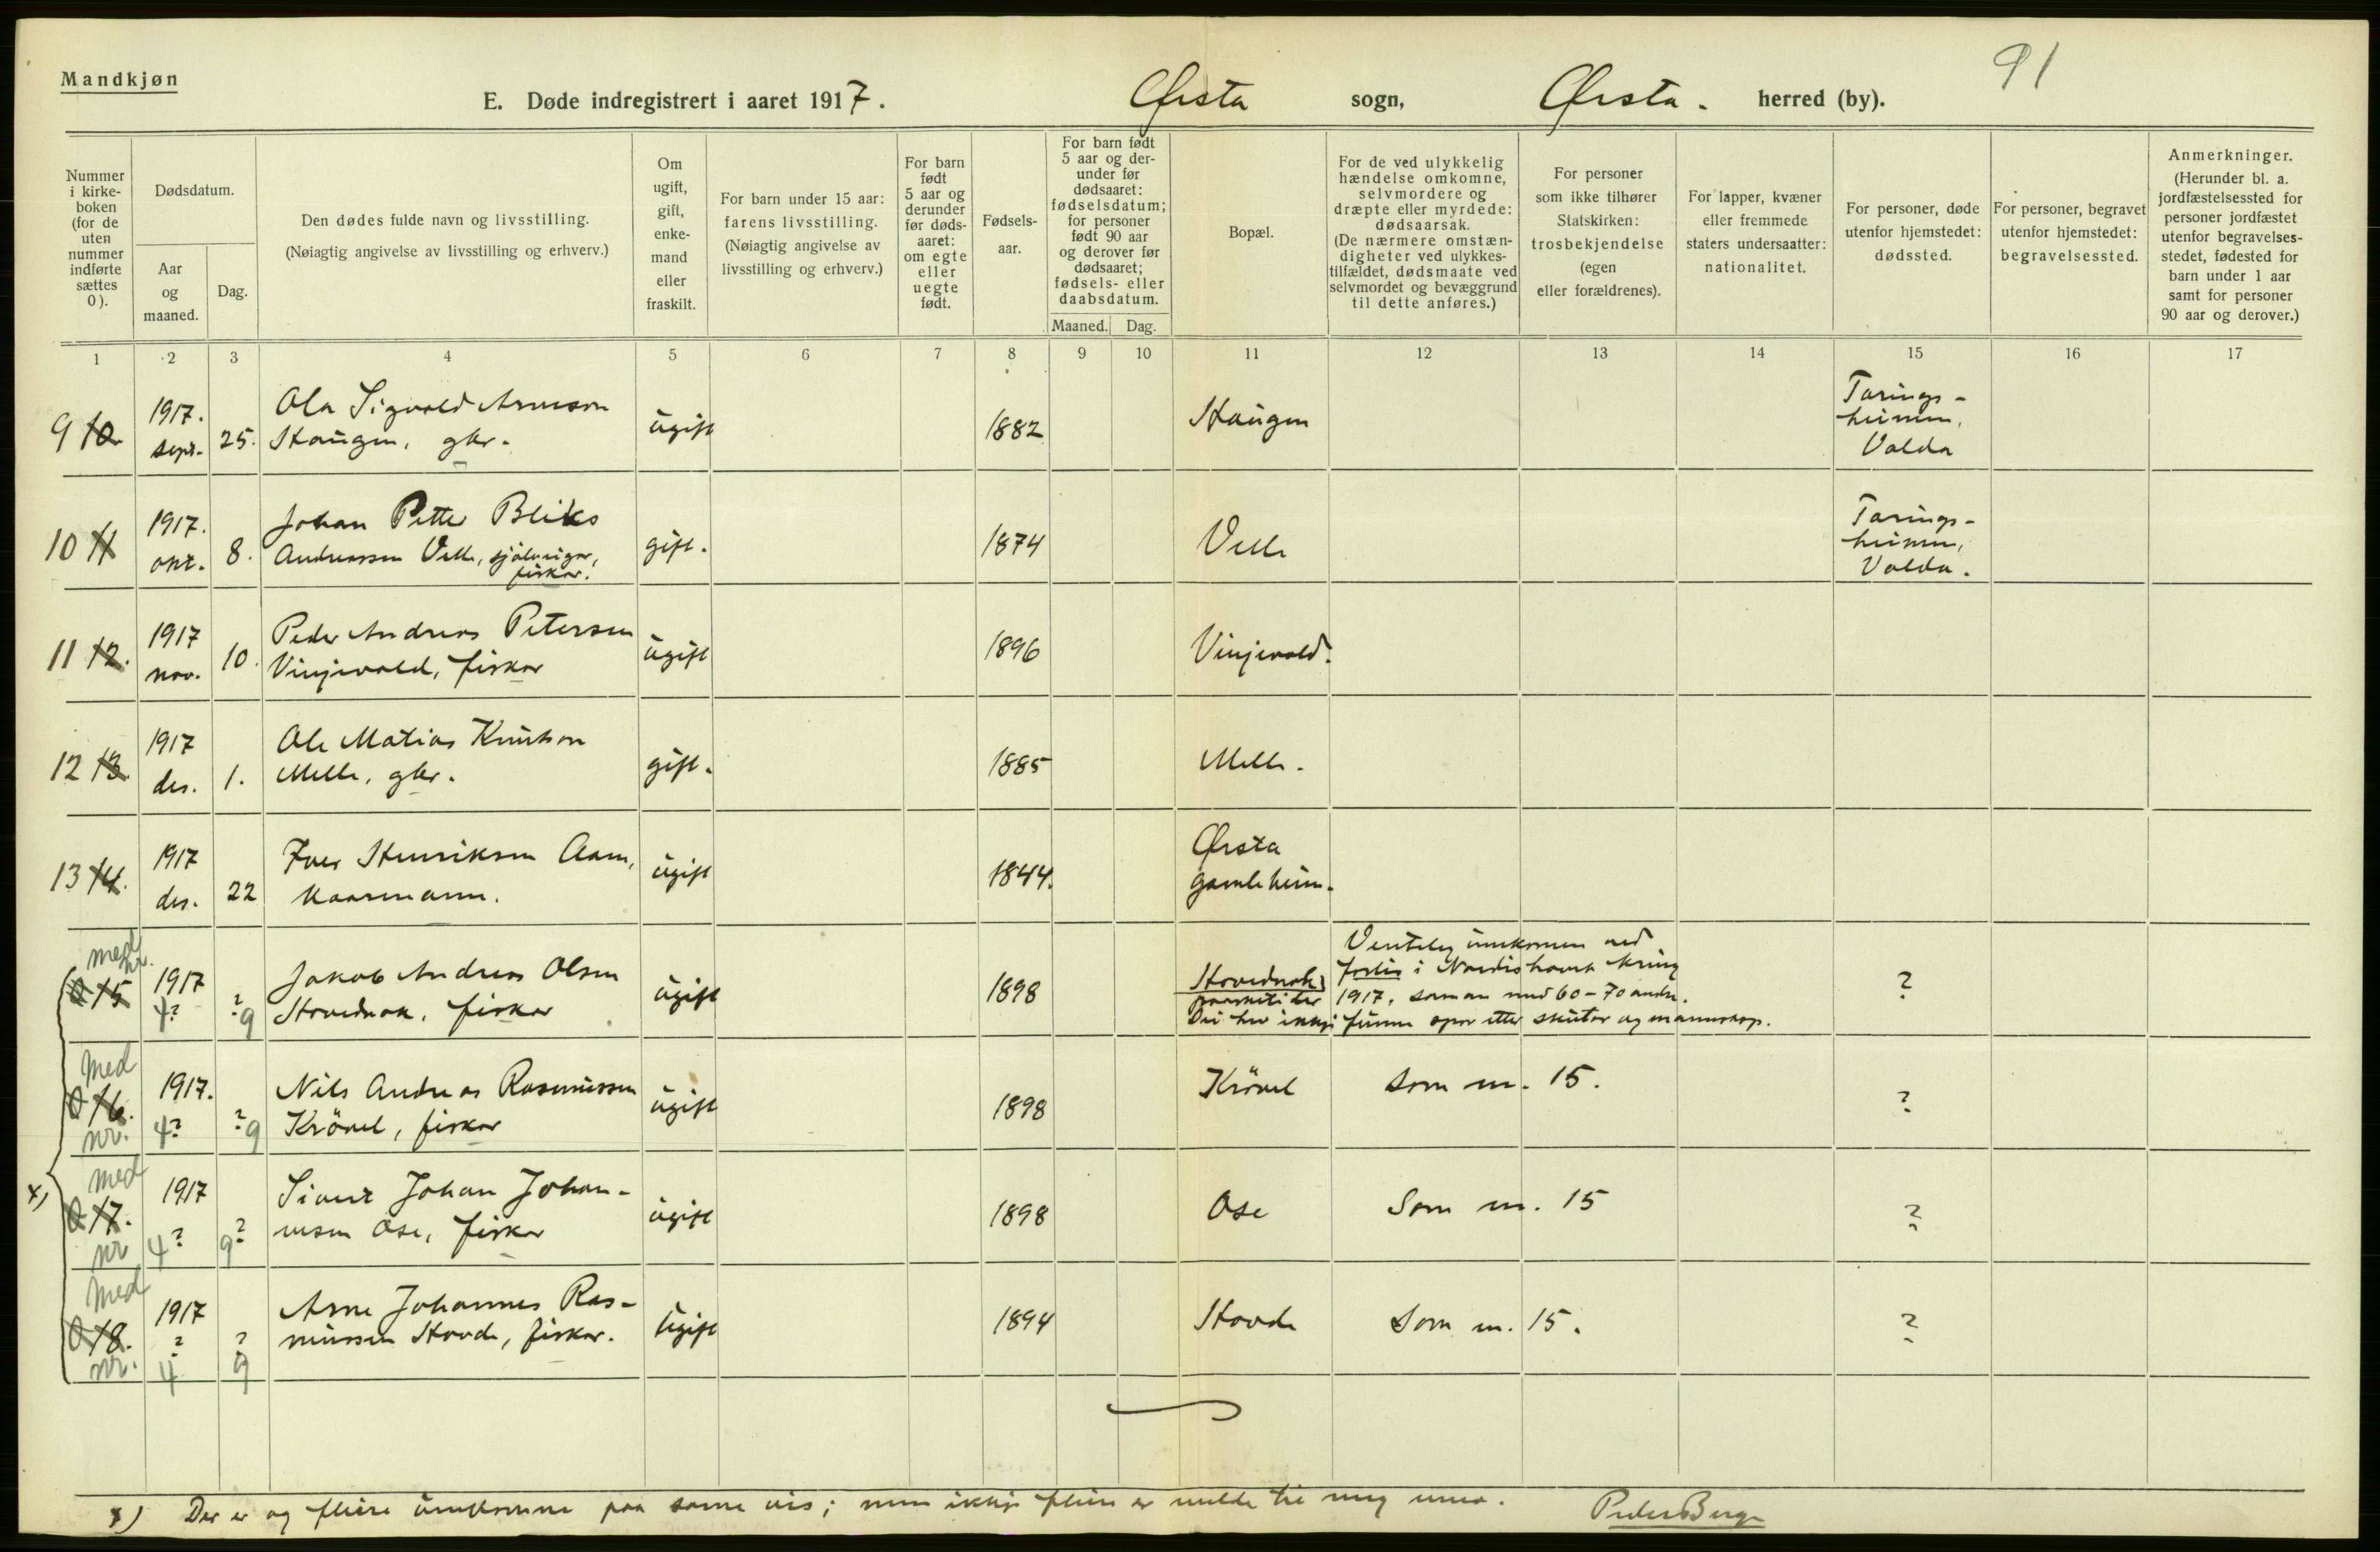 Mandkjøn
91
E. Døde indregistrert i aaret 1917. Ørsta sogn, Ørsta. herred (by).
Nummer i kirke-boken (for de uten nummer indførte sættes 0).
Dødsdatum.
Aar og maaned.
Dag.
Den dødes fulde navn og livsstilling.
(Nøiagtig angivelse av livsstilling og erhverv.)
Om ugift, gift, enke-mand eller fraskilt.
For barn under 15 aar: farens livsstilling. (Nøiagtig angivelse av livsstilling og erhverv.)
For barn født 5 aar og derunder før døds-aaret: om egte eller uegte født.
Fødsels-aar.
For barn født 5 aar og der-under før dødsaaret: fødselsdatum; for personer født 90 aar og derover før dødsaaret; fødsels- eller daabsdatum.
Maaned. Dag.
Bopæl.
For de ved ulykkelig hændelse omkomne, selvmordere og dræpte eller myrdede: dødsaarsak. (De nærmere omstæn-digheter ved ulykkes-tilfældet, dødsmaate ved selvmordet og bevæggrund til dette anføres.)
For personer som ikke tilhører Statskirken: trosbekjendelse (egen eller forældrenes).
For lapper, kvæner eller fremmede staters undersaatter: nationalitet.
For personer, døde utenfor hjemstedet: dødssted.
For personer, begravet utenfor hjemstedet: begravelsessted.
Anmerkninger. (Herunder bl. a. jordfæstelsessted for personer jordfæstet utenfor begravelses-stedet, fødested for barn under 1 aar samt for personer 90 aar og derover.)
1 2 3 4 5 6 7 8 9 10 11 12 13 14 15 16 17
9 10 1917. sept. 25. Ola Sigvald Arneson
Haugen, gbr. ugift 1882 Haugen Tærings-
heimen,
Volda
10 11 1917. okt. 8. Johan Petter Bliks
Andreassen Velle, sjølveigar,
fiskar. gift. 1874 Velle Tærings-
heimen,
Volda.
11 12. 1917 nov. 10. Peder Andreas Petersen
Vinjevold, fiskar ugift 1896 Vinjevold.
12 13. 1917 des. 1. Ole Matias Knutson
Melle, gbr. gift. 1885 Melle.
13 14. 1917 des. 22 Iver Henriksen Aam,
kaarmann. ugift 1844. Ørsta
gamleheim.
med nr.
0 15 1917 4? ? 9 Jakob Andreas Olsen
Hovdenak, fiskar ugift 1898 Hovdenak Venteleg umkomen ved
forlis i Nordishavet kring
paasketider 1917, saman med 60-70 andre.
Dei hev ikkje funne spor etter skutor og mannskap.
?
med
0 16. nr. 1917. 4? ? 9 Nils Andreas Rasmussen
Krøvel, fiskar ugift 1898 Krøvel Som nr. 15. ?
x)
med
0 17. nr 1917 4? 9? Sivert Johan Johan-
nesen Ose, fiskar ugift 1898 Ose Som nr. 15 ?
Med
0 18. nr. 1917 ? 4 ? 9 Arne Johannes Ras-
mussen Hovde, fiskar. Ugift 1894 Hovde Som nr. 15. ?
x) Der er og fleire umkomne paa same vis; men ikkje fleire er melde til meg enno. Peder Berge